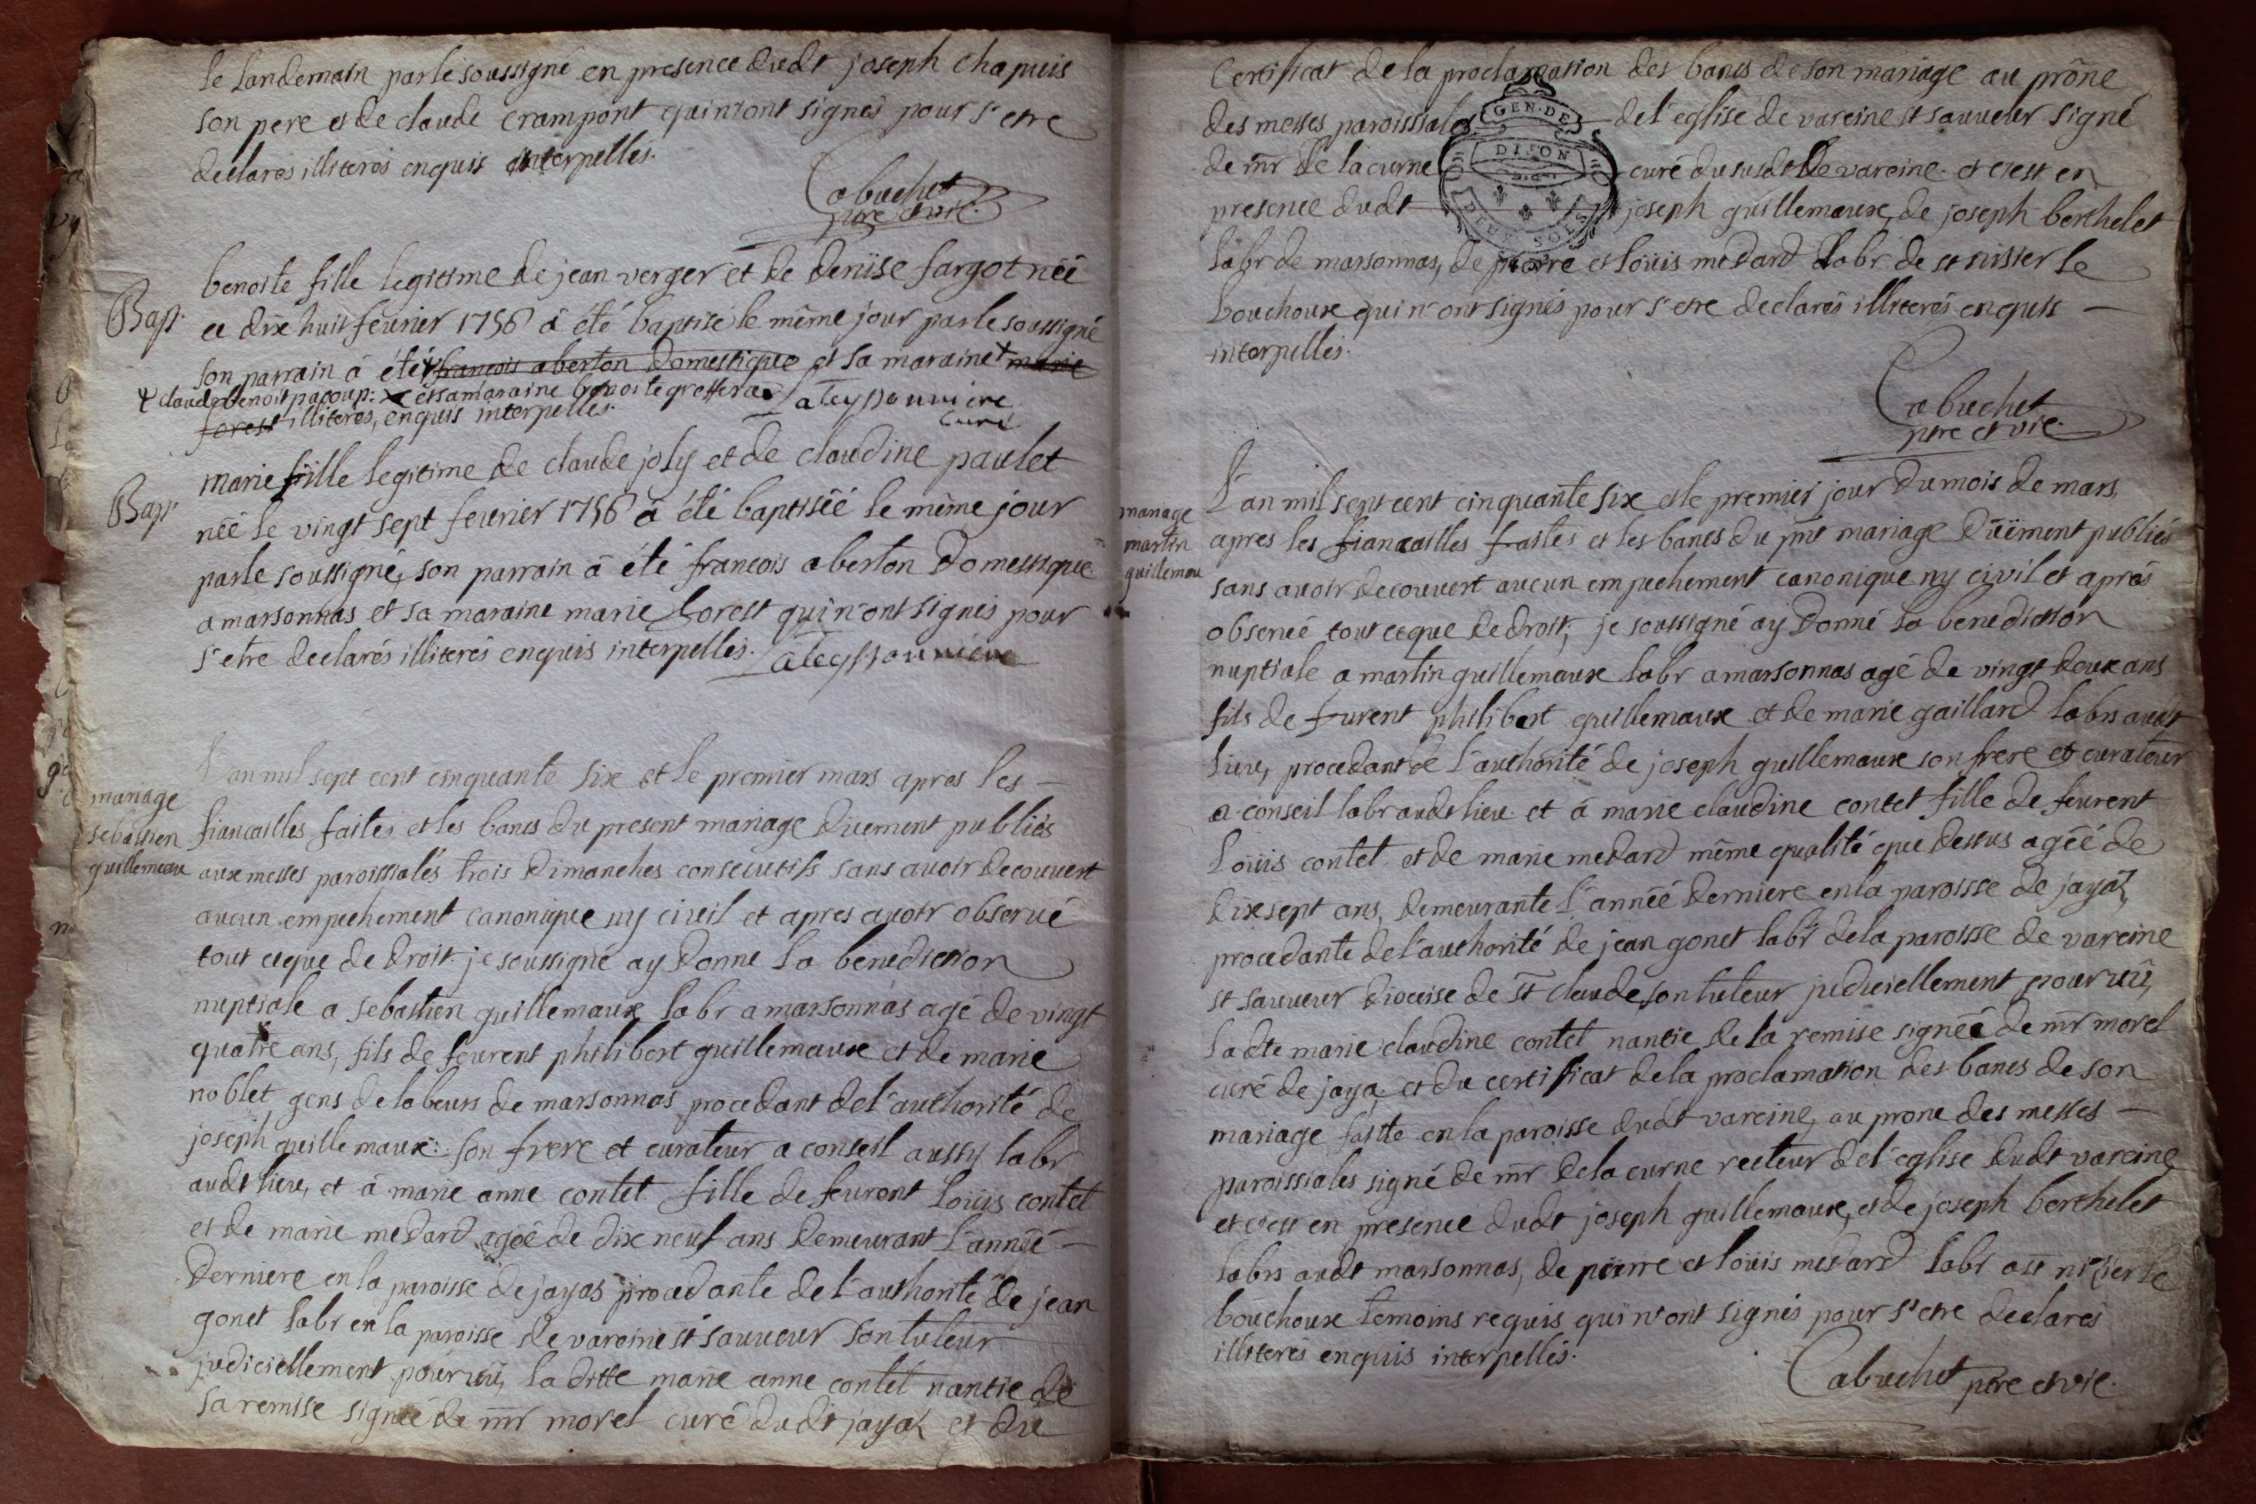 le landemain par le soussigné en presence dudt joseph chapuis
son pere et de claude crampont qui n'ont signés pour s'etre
declarés illiterés enquis interpellés.
Cabuchet
ptre et vic.
Bap.
benoite fille legitime de jean verger et de denise fargot née
ce dix huit fevrier 1756 á été baptise le même jour par le soussigné
son parrain á été francois aberton domestique et sa maraine marie
claude benoit pacoup: et sa maraine benoite greffera
forest illiteres, enquis interpelles.
aleyssonniere
curé
Bap.
marie fille legitime de claude joly et de claudine paulet
née le vingt sept fevrier 1756 á été baptisée le même jour
par le soussigné, son parrain á été francois aberton domestique
a marsonnas et sa maraine marie forest qui n'ont signés pour
s'etre declarés illiterés enquis interpellés.
aleyssonniere
mariage
sebastien
guillemeau
L'an mil sept cent cinquante six et le premier mars apres les
fiancailles faites et les bancs du present mariage duement publiés
aux messes paroissialés trois dimanches consecutifs sans avoir decouvert
aucun empechement canonique ny civil et apres avoir observé
tout ceque de droit je soussigné ay donné la benediction
nuptiale a sebastien guillemaux labr a marsonnas agé de vingt
quatre ans, fils de feurent philibert guillemaux et de marie
noblet gens de labeurs de marsonnas procedant de l'authorité de
joseph guillemaux son frere et curateur a conseil aussy labr
audt lieu, et á marie anne contet fille de feurent Loüis contet
et de marie medard agée de dix neuf ans demeurant l'année
derniere en la paroisse de jayas procedante de l'authorité de jean
gonet labr en la paroisse de vareine st sauveur son tuteur
judiciellement pourvü, la ditte marie anne contet nantie de
sa remise signée de mr morel curé dudt jayat et du
certificat de la proclamation des bancs de son mariage au prône
des messes paroissiales de l'eglise de vareine st sauveur signé
de mr de lacurne curé du susdt de vareine et c'est en
presence dudt joseph guillemaux, de joseph berthelet
labr de marsonnas, de pierre et loüis medard labr de st nisier le
bouchoux qui n'ont signés pour s'etre declarés illiterés enquis
interpellés.
GEN. DE
DIJON
DEUX SOLS
Cabuchet
ptre et vic.
mariage
martin
guillemau
L'an mil sept cent cinquante six et le premier jour du mois de mars
apres les fiancailles faites et les bancs du pnt mariage düement publiés
sans avoir decouvert aucun empechement canonique ny civil et aprés
observé tout ceque de droit, je soussigné ay donné la benediction
nuptiale a martin guillemaux labr a marsonnas agé de vingt deux ans
fils de furent philibert guillemaux et de marie gaillard labrs audt
lieu, procedant de l'authorité de joseph guillemaux son frere et curateur
a conseil labr audt lieu et á marie claudine contet fille de feurent
Loüis contet et de marie medard même qualité que dessus agée de
dixsept ans, demeurante l'année derniere en la paroisse de jayat,
procedante de l'authorité de jean gonet labr de la paroisse de vareine
st sauveur diocaise de st claude son tuteur judiciellement pourvü,
ladte marie claudine contet nantie de la remise signée de mr morel
curé de jaya et du certificat de la proclamation des bancs de son
mariage faitte en la paroisse dudt vareine, au prone des messes
paroissiales signé de mr delacurne recteur de l'eglise dudt vareine
et c'est en presence dudt joseph guillemaux, et de joseph berthelet
labrs audt marsonnas, de pierre et loüis medard labr a st nizier le
bouchoux temoins requis qui n'ont signés pour s'etre declarés
illiterés enquis interpellés.
Cabuchet ptre et vic.